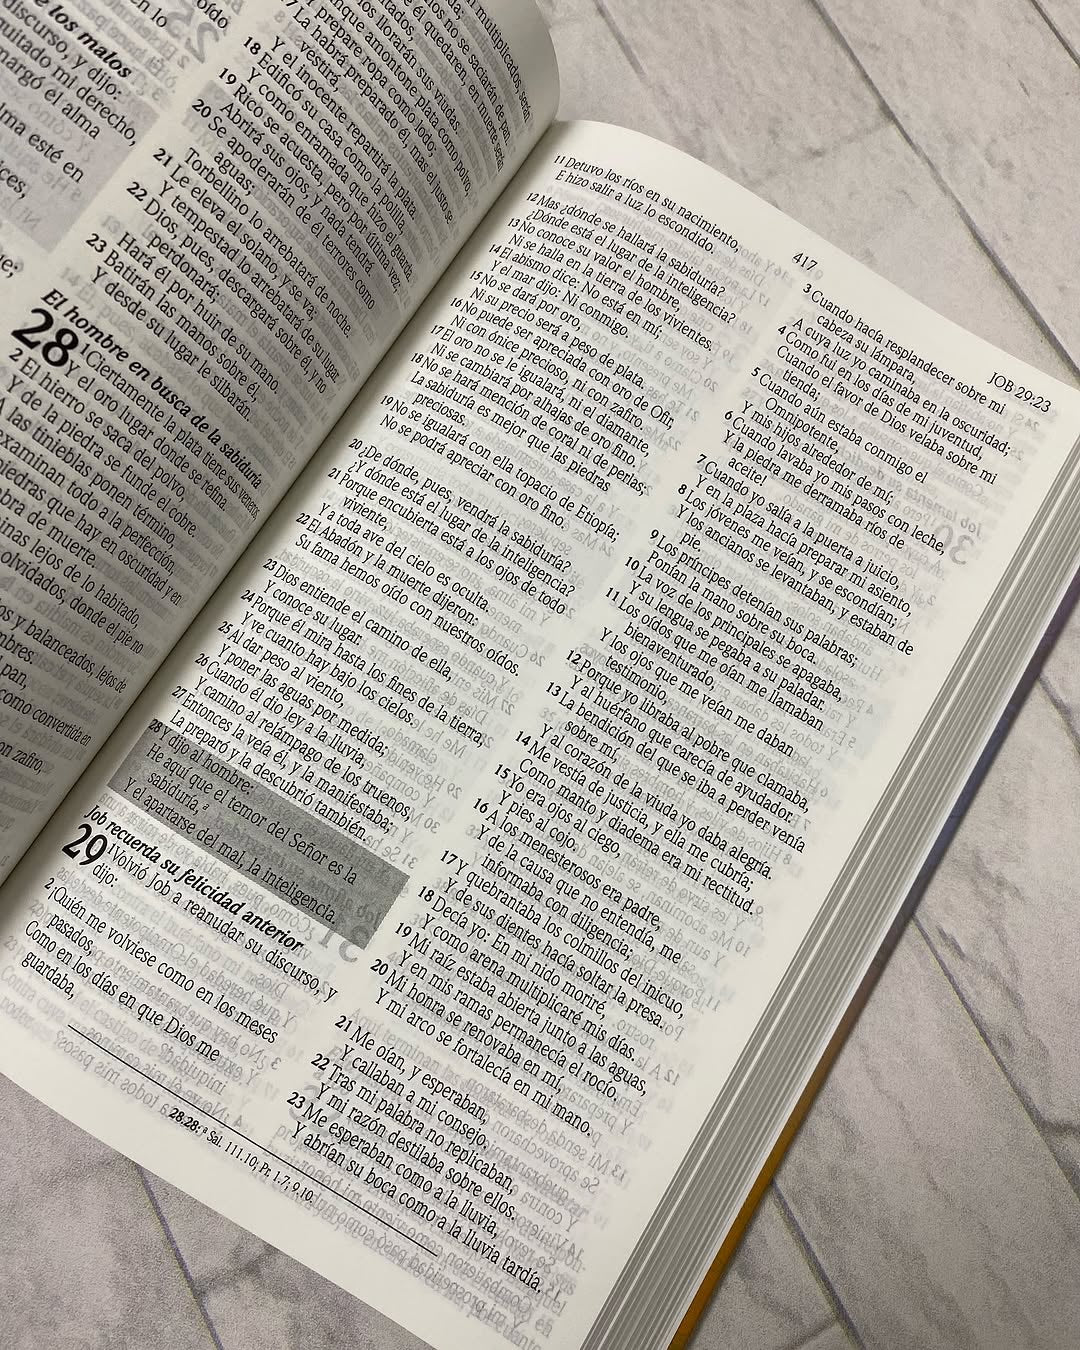 e los malos
discurso, y dijo:
quitado mi derecho,
margó el alma
lma esté en
18 Edificó su casa como la polilla,
Y como enramada que hizo el guarda.
19 Rico se acuesta, pero por última vez;
Abrirá sus ojos, y nada tendrá.
20 Se apoderarán de él terrores como
aguas;
Torbellino lo arrebatará de noche.
21 Le eleva el solano, y se va;
Y tempestad lo arrebatará de su lugar.
22 Dios, pues, descargará sobre él, y no
perdonará;
Hará él por huir de su mano.
23 Batirán las manos sobre él,
Y desde su lugar le silbarán.
El hombre en busca de la sabiduría
28 1 Ciertamente la plata tiene sus veneros,
Y el oro lugar donde se refina.
2 El hierro se saca del polvo,
Y de la piedra se funde el cobre.
A las tinieblas ponen término,
examinan todo a la perfección,
piedras que hay en oscuridad y en
bra de muerte.
inas lejos de lo habitado,
olvidados, donde el pie no
s y balanceados, lejos de
mbres.
pan,
como convertida en
on zafiro,
11 Detuvo los ríos en su nacimiento,
E hizo salir a luz lo escondido.
12 Mas ¿dónde se hallará la sabiduría?
¿Dónde está el lugar de la inteligencia?
13 No conoce su valor el hombre,
Ni se halla en la tierra de los vivientes.
14 El abismo dice: No está en mí;
Y el mar dijo: Ni conmigo.
15 No se dará por oro,
Ni su precio será a peso de plata.
16 No puede ser apreciada con oro de Ofir,
Ni con ónice precioso, ni con zafiro.
17 El oro no se le igualará, ni el diamante,
Ni se cambiará por alhajas de oro fino.
18 No se hará mención de coral ni de perlas;
La sabiduría es mejor que las piedras
preciosas.
19 No se igualará con ella topacio de Etiopía;
No se podrá apreciar con oro fino.
20 ¿De dónde, pues, vendrá la sabiduría?
¿Y dónde está el lugar de la inteligencia?
21 Porque encubierta está a los ojos de todo
viviente,
Y a toda ave del cielo es oculta.
22 El Abadón y la muerte dijeron:
Su fama hemos oído con nuestros oídos.
23 Dios entiende el camino de ella,
Y conoce su lugar.
24 Porque él mira hasta los fines de la tierra,
Y ve cuanto hay bajo los cielos.
25 Al dar peso al viento,
Y poner las aguas por medida;
26 Cuando él dio ley a la lluvia,
Y camino al relámpago de los truenos,
27 Entonces la veía él, y la manifestaba;
La preparó y la descubrió también.
28 Y dijo al hombre:
He aquí que el temor del Señor es la
sabiduría,a
Y el apartarse del mal, la inteligencia.
Job recuerda su felicidad anterior
29 1 Volvió Job a reanudar su discurso, y
dijo:
2 ¡Quién me volviese como en los meses
pasados,
Como en los días en que Dios me
guardaba,
28.28: a Sal. 111.10; Pr. 1.7; 9.10.
417
JOB 29:23
3 Cuando hacía resplandecer sobre mi
cabeza su lámpara,
A cuya luz yo caminaba en la oscuridad;
4 Como fui en los días de mi juventud,
Cuando el favor de Dios velaba sobre mi
tienda;
5 Cuando aún estaba conmigo el
Omnipotente,
Y mis hijos alrededor de mí;
6 Cuando lavaba yo mis pasos con leche,
Y la piedra me derramaba ríos de
aceite!
7 Cuando yo salía a la puerta a juicio,
Y en la plaza hacía preparar mi asiento,
8 Los jóvenes me veían, y se escondían;
Y los ancianos se levantaban, y estaban de
pie.
9 Los príncipes detenían sus palabras;
Ponían la mano sobre su boca.
10 La voz de los principales se apagaba,
Y su lengua se pegaba a su paladar.
11 Los oídos que me oían me llamaban
bienaventurado,
Y los ojos que me veían me daban
testimonio,
12 Porque yo libraba al pobre que clamaba,
Y al huérfano que carecía de ayudador.
13 La bendición del que se iba a perder venía
sobre mí,
Y al corazón de la viuda yo daba alegría.
14 Me vestía de justicia, y ella me cubría;
Como manto y diadema era mi rectitud.
15 Yo era ojos al ciego,
Y pies al cojo.
16 A los menesterosos era padre,
Y de la causa que no entendía, me
informaba con diligencia;
17 Y quebrantaba los colmillos del inicuo,
Y de sus dientes hacía soltar la presa.
18 Decía yo: En mi nido moriré,
Y como arena multiplicaré mis días.
19 Mi raíz estaba abierta junto a las aguas,
Y en mis ramas permanecía el rocío.
20 Mi honra se renovaba en mí,
Y mi arco se fortalecía en mi mano.
21 Me oían, y esperaban,
Y callaban a mi consejo.
22 Tras mi palabra no replicaban,
Y mi razón destilaba sobre ellos.
23 Me esperaban como a la lluvia,
Y abrían su boca como a la lluvia tardía.